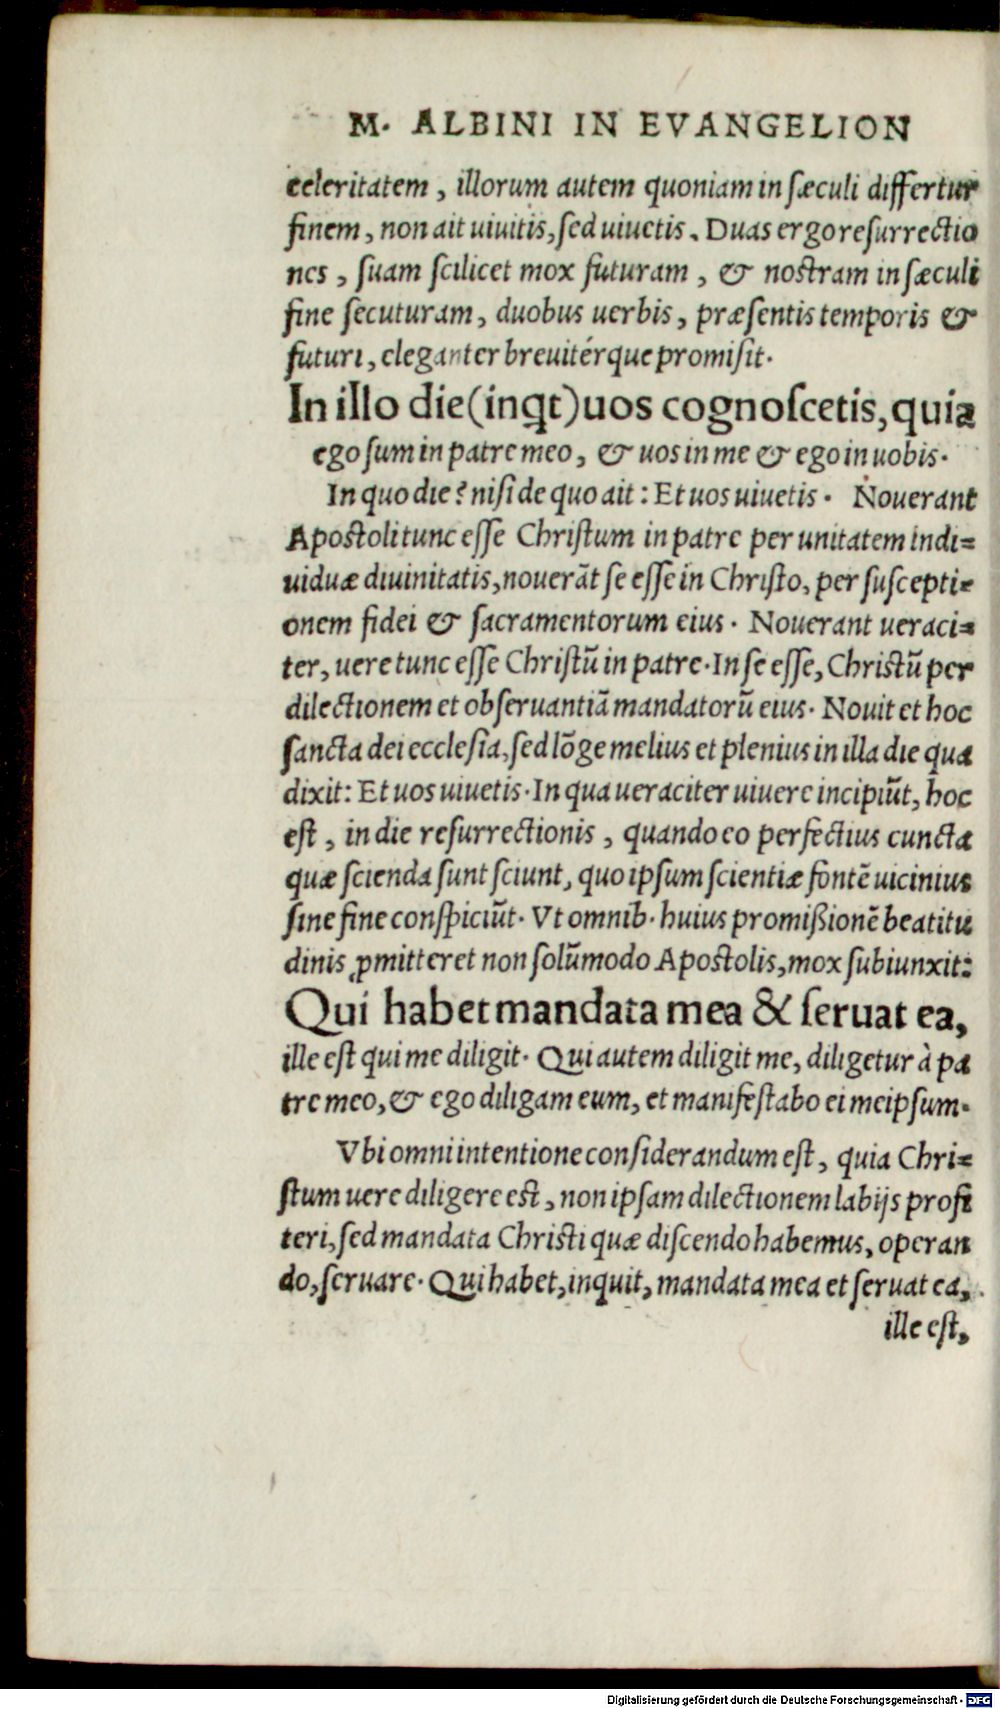 M. ALBINI IN EVANGELION
celeritatem, illorum autem quoniam in sæculi differtur
finem, non ait uiuitis, sed uiuetis. Duas ergo resurrectio
nes, suam scilicet mox futuram, & nostram in sæculi
fine secuturam, duobus uerbis, præsentis temporis &
futuri, eleganter breuitérque promisit.
In illo die (inqt) uos cognoscetis, quia
ego sum in patre meo, & uos in me & ego in uobis.
In quo die? nisi de quo ait: Et uos uiuetis. Nouerant
Apostoli tunc esse Christum in patre per unitatem indi=
uiduæ diuinitatis, nouerāt se esse in Christo, per suscepti=
onem fidei & sacramentorum eius. Nouerant ueraci=
ter, uere tunc esse Christū in patre. In se esse, Christū per
dilectionem et obseruantiā mandatorū eius. Nouit et hoc
sancta dei ecclesia, sed lōge melius et plenius in illa die qua
dixit: Et uos uiuetis. In qua ueraciter uiuere incipiūt, hoc
est, in die resurrectionis, quando eo perfectius cuncta
quæ scienda sunt sciunt, quo ipsum scientiæ fontē uicinius
sine fine conspiciūt. Vt omnib. huius promißionē beatitu
dinis ꝓmitteret non solūmodo Apostolis, mox subiunxit:
Qui habet mandata mea & seruat ea,
ille est qui me diligit. Qui autem diligit me, diligetur à pa
tre meo, & ego diligam eum, et manifestabo ei meipsum.
Vbi omni intentione considerandum est, quia Chri=
stum uere diligere est, non ipsam dilectionem labijs profi
teri, sed mandata Christi quæ discendo habemus, operan
do, seruare. Qui habet, inquit, mandata mea et seruat ea,
ille est,
Digitalisierung gefördert durch die Deutsche Forschungsgemeinschaft - DFG